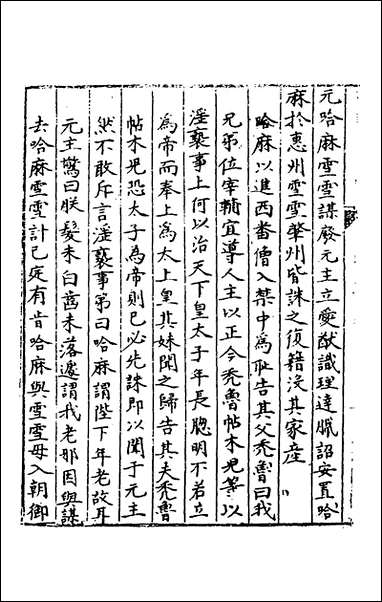 元哈麻雪雪謀廢元主立愛猷識理達臘詔安置哈
麻於惠州雪雪肇州皆誅之復籍沒其家産
哈麻以進西畨僧入禁中為恥告其父秃魯曰我
兄弟位宰輔宜導人主以正今秃魯帖木児等以
淫䙝事上何以治天下皇太子年長聰明不若立
為帝而奉上為太上皇其妹聞之歸告其夫秃魯
帖木児恐太子為帝則已必先誅即以聞于元主
然不敢斥言淫䙝事第曰哈麻謂陛下年老故耳
元主驚曰朕髮未白齒未落遽謂我老耶因與謀
去哈麻雪雪計已定有肯哈麻與雪雪毋入朝御